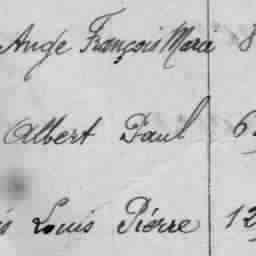 Ange François Marie 8
Albert Paul 6
Louis Pierre 12